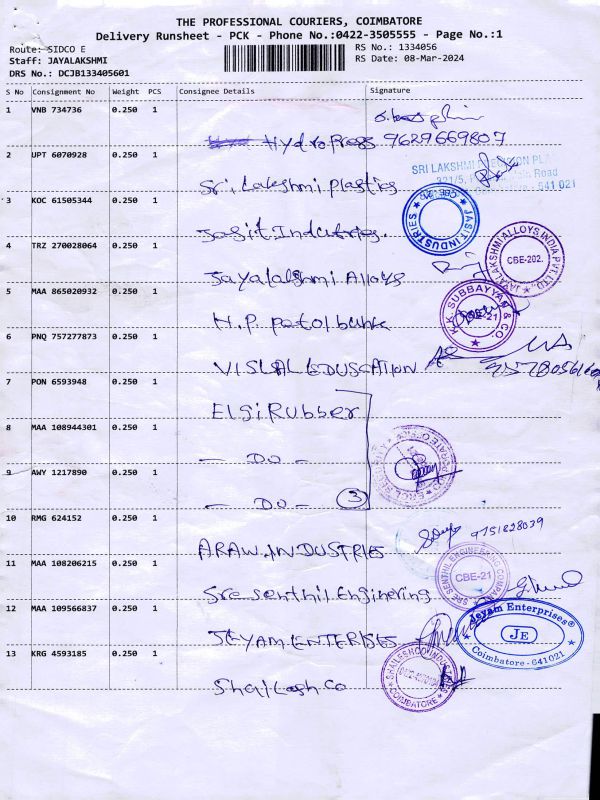 THE PROFESSIONAL COURIERS, COIMBATORE
Delivery Runsheet - PCK - Phone No.:0422-3505555 - Page No.:1
Route: SIDCO E
RS No.: 1334056
Staff: JAYALAKSHMI
RS Date: 08-Mar-2024
DRS No.: DCJB133405601
S No Consignment No Weight PCS Consignee Details Signature
1 VNB 734736 0.250 1
Hydro Press 9629669807
2 UPT 6070928 0.250 1
SRI LAKSHMI PLA
321/5, Road
641 021
Sri. Lakshmi plastics
3 KOC 61505344 0.250 1
JASIT INDUSTRIES
Jasit Industries.
4 TRZ 270028064 0.250 1
JAYALAKSHMI ALLOYS INDIA PVT LTD.,
CBE-202.
Jayalakshmi Alloys
5 MAA 865020932 0.250 1
K.K. SUBBAYYAN & CO.
CBE-21
H.P. petol bunk
6 PNQ 757277873 0.250 1
VISUAL EDUSCATION
7 PON 6593948 0.250 1
Elgi Rubber
8 MAA 108944301 0.250 1
- Do -
9 AWY 1217890 0.250 1
- Do - 3
10 RMG 624152 0.250 1
9751828039
INDUSTRIES
11 MAA 108206215 0.250 1
SRE SENTHIL ENGINEERING COMPANY
CBE-21
Sre Senthil Enginering
12 MAA 109566837 0.250 1
Jeyam Enterprises®
JE
Coimbatore - 641021
JEYAM ENTERISES
13 KRG 4593185 0.250 1
COIMBATORE
Shailesh Co